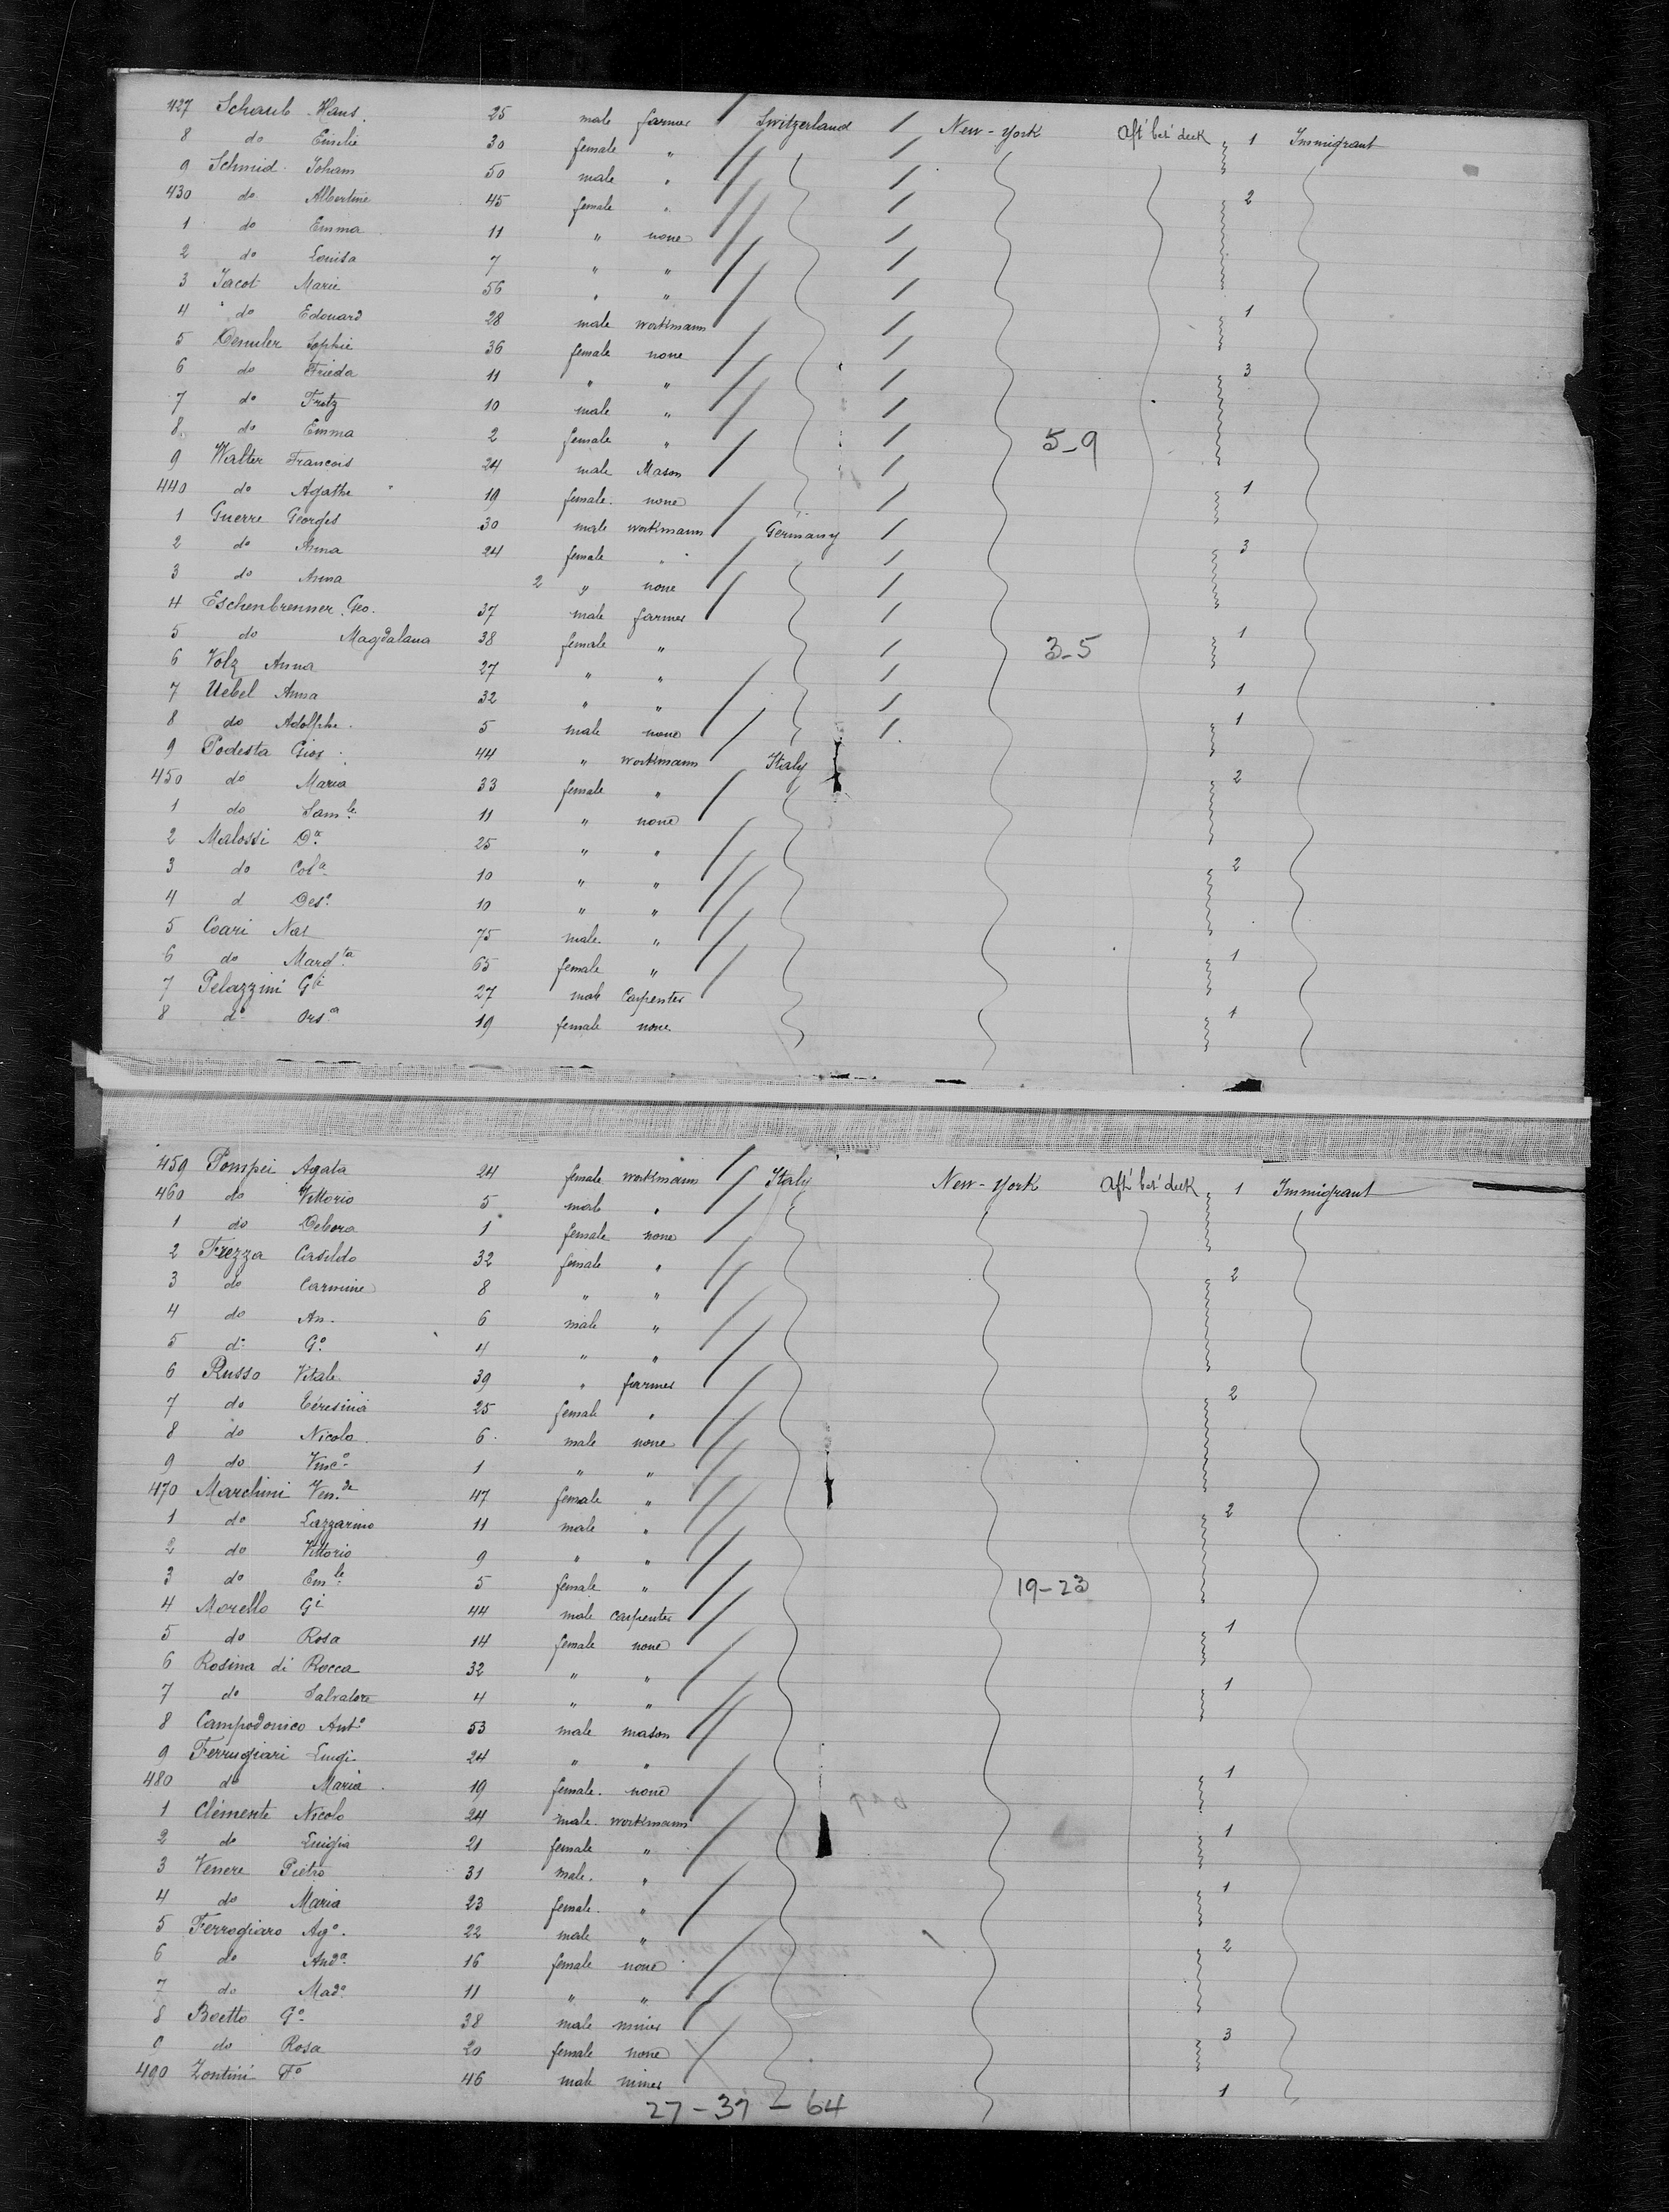 427 Schaub Hans. 25 male farmer Switzerland / New-York Aft' bet' deck 1 Immigrant
8 do Emilie 30 female "
9 Schmid Joham 50 male "
430 do Albertine 45 female " 2
1 do Emma 11 " none
2 do Louisa 7 " "
3 Jacot Marie 56 " "
4 " do Edouard 28 male workmann 1
5 Demuler Sophie 36 female none
6 do Frieda 11 " " 3
7 do Fritz 10 male "
8 do Emma 2 female " 5-9
9 Walter Francois 24 male Mason
440 do Agathe 19 female. none 1
1 Guerre Georges 30 male workmann Germany
2 do Anna 24 female " 3
3 do Anna 2 " none
4 Eschenbrenner. Geo. 37 male farmer
5 do Magdalana 38 female " 3-5 1
6 Volz Anna 27 " "
7 Uebel Anna 32 " " 1
8 do Adolphe. 5 male none 1
9 Podesta Gios 44 " workmann Italy
450 do Maria 33 female " 2
1 do Samle 11 " none
2 Malossi Da. 25 " "
3 do Cola 10 " " 2
4 d Deso 10 " "
5 Coari Nat 75 male. "
6 do Margta 65 female " 1
7 Pelazzini Gi 27 male Carpenter
8 do Orsa 19 female none 1
459 Pompei Agata 24 female workmann Italy New-York Aft' bet' deck 1 Immigrant
460 do Vittorio 5 male "
1 do Debora 1 female none
2 Frezza Casildo 32 female " 2
3 do Carmine 8 " "
4 do An. 6 male "
5 do Go. 4 " "
6 Russo Vitale 39 " farmer 2
7 do Téresina 25 female "
8 do Nicola 6 male none
9 do Vinco 1 " "
470 Marchini Ven.de 47 female " 2
1 do Lazzarino 11 male "
2 do Vittorio 9 " "
3 do Emle 5 female " 19-23
4 Morello Gi 44 male carpenter 1
5 do Rosa 14 female none
6 Rosina di Rocca 32 " " 1
7 do Salvatore 4 " "
8 Campodonico Anto 53 male mason
9 Ferrugiari Luigi 24 " " 1
480 do Maria. 19 female. none
1 Clémente Nicolo 24 male. workmann 1
2 do Luigia 21 female "
3 Venere Pietro 31 male. " 1
4 do Maria 23 female. "
5 Ferrogiaro Ago. 22 male " 2
6 do Anda 16 female none
7 do Mado 11 " "
8 Boetto Go 38 male miner 3
9 do Rosa 20 female none
490 Zontini Fo 46 male miner 1
27-37-64